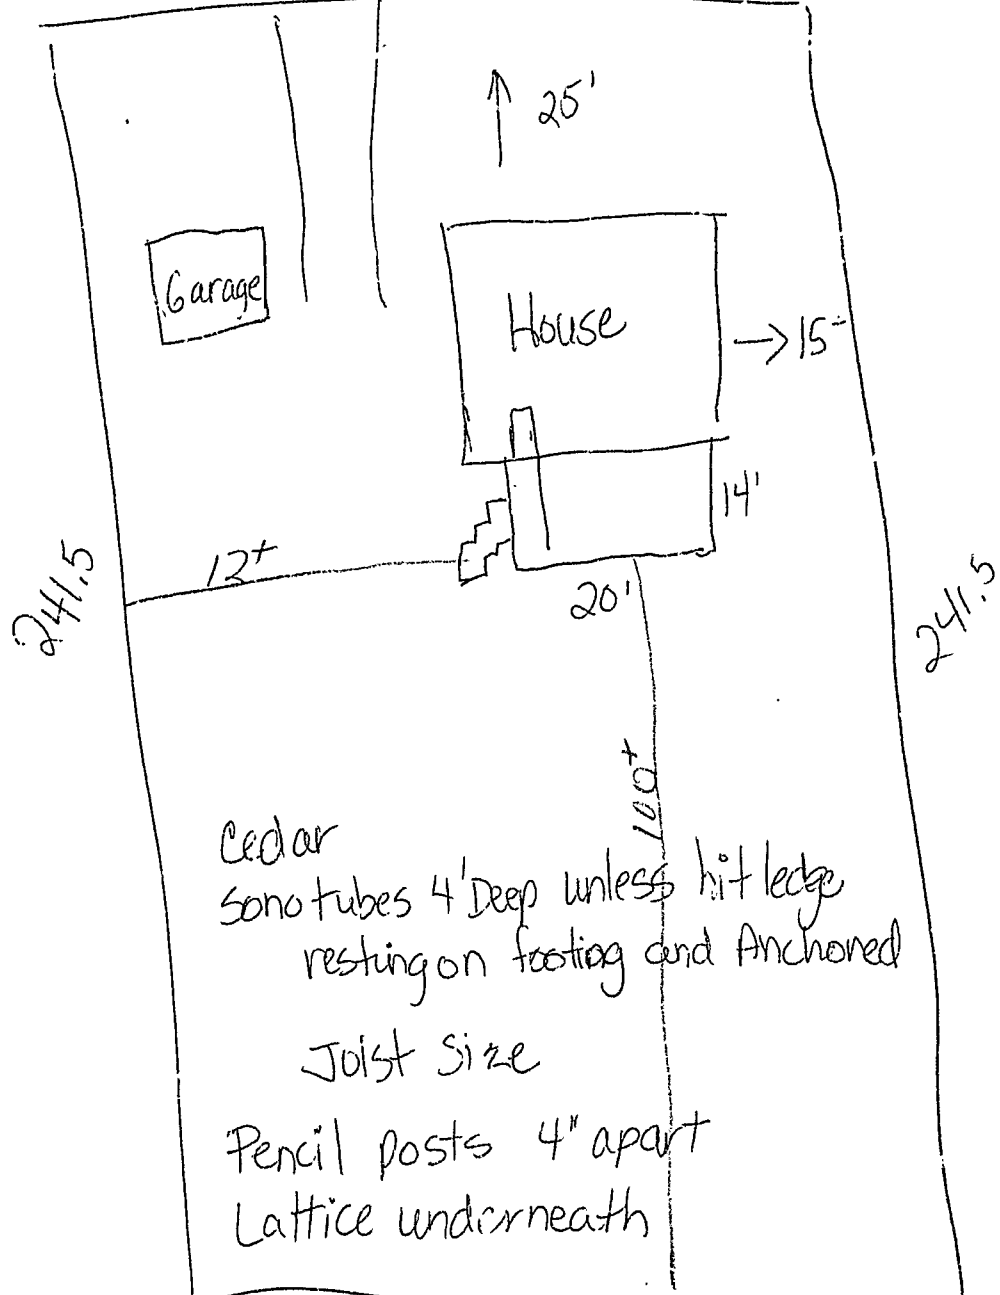 25'
Garage
House
15-
14'
12+
20'
241.5
241.5
100+
Cedar
Sonotubes 4' Deep unless hit ledge
resting on footing and Anchored
Joist Size
Pencil posts 4" apart
Lattice underneath